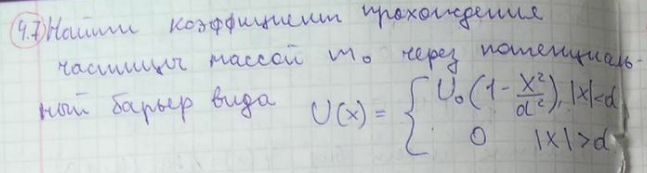 4.7) Найти коэффициент прохождения
частицы массой m₀ через потенциаль-
ный барьер вида U(x) = { U₀(1 - x²/d²), |x|<d
0 |x|>d